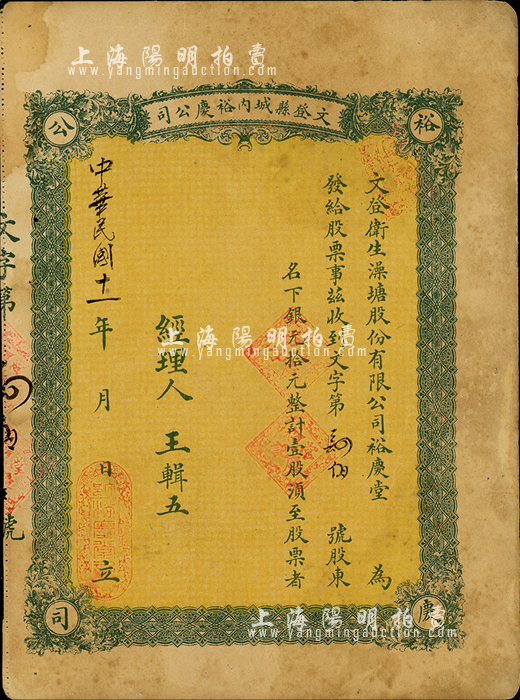 上海陽明拍賣
www.yangmingauction.com
文登縣城内裕慶公司
裕
慶
公
司
文登衛生澡塘股份有限公司裕慶堂 為
發給股票事兹收到文字第 號股東
名下銀元拾元整計壹股須至股票者
經理人 王輯五
中華民國十一年 月 日立
文字第 號
上海陽明拍賣
www.yangmingauction.com
上海陽明拍賣
www.yangmingauction.com